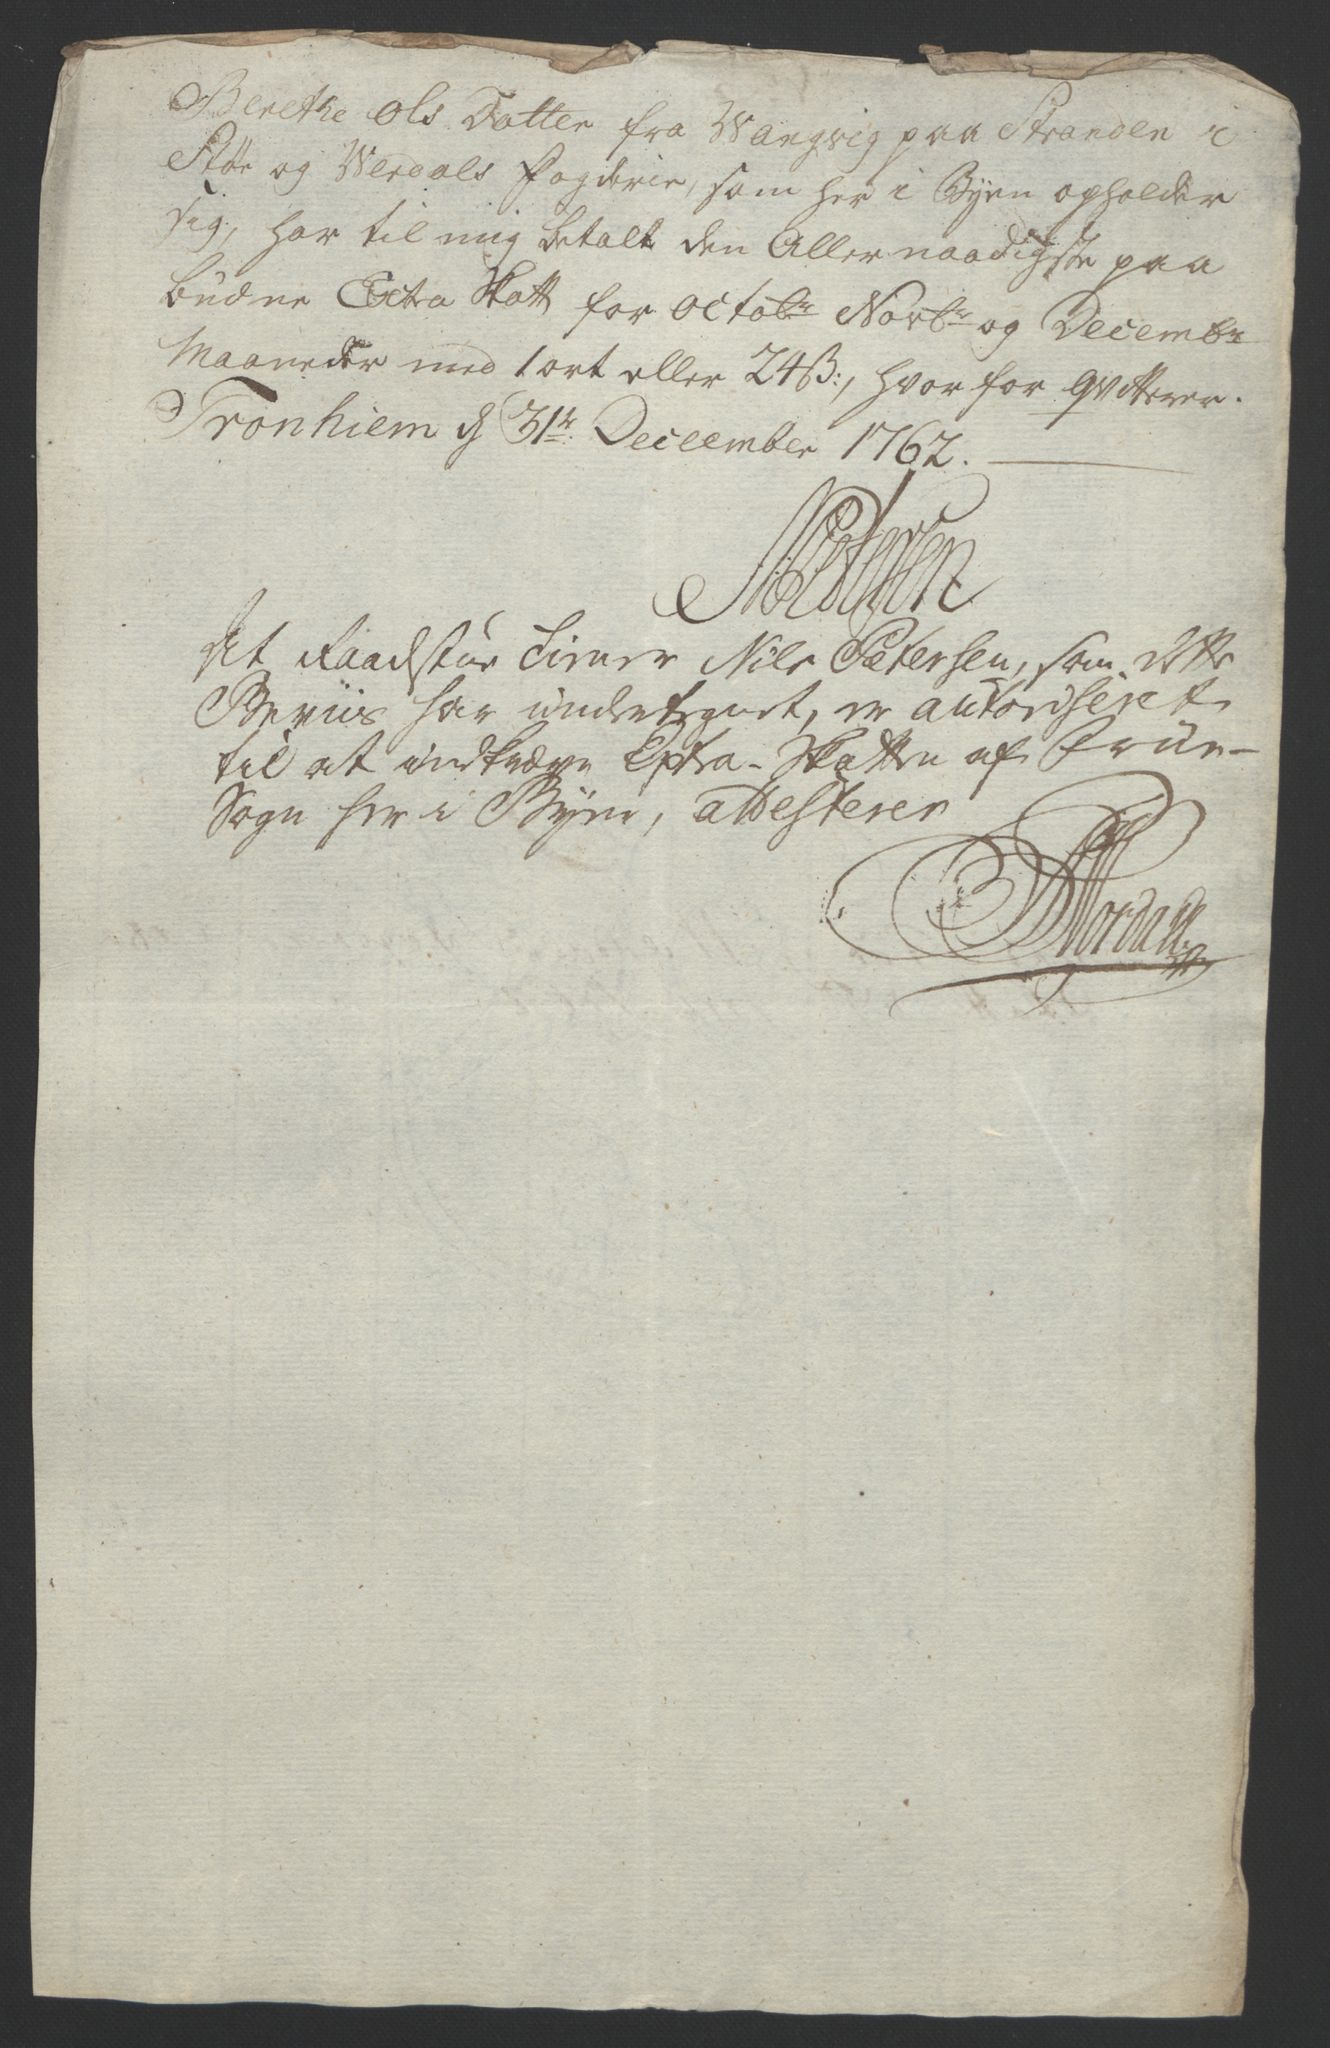 Berethe Ols Datter fra Wangvig paa Stranden i
Stør og Werdals Fogderie, som her i Byen opholder
sig, har til mig betalt den Allernaadigste paa
budne Extra Skatt for Octobr Novbr og Decembr
Maaneder med 1 ort eller 24 ß:, hvor for qvitterer.
Tronhiem d 31te December 1762.
NPetersen
At Raadstue Tiener Nils Petersen, som dette
Beviis har underteignet, er autoriseret
til at indkræve Extra-Skatten af Frue-
Sogn her i Byen, attesterer
Nordahl